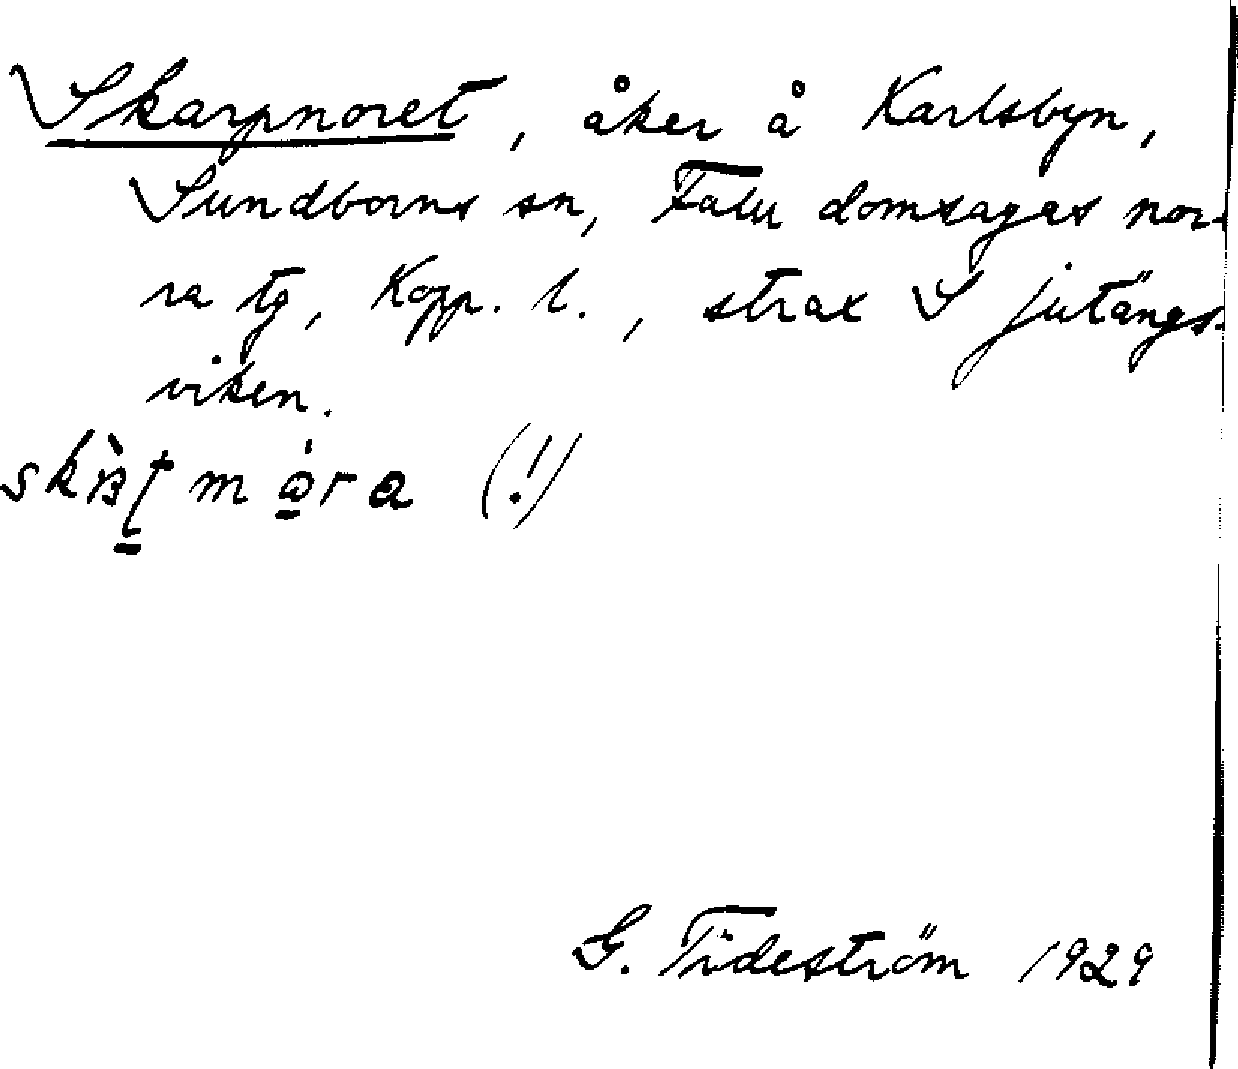 Skarpnoret, åker å Karlsbyn,
Sundborns sn, Falu domsagas nor-
ra tg, Kopp. l., strax S Jutängs-
viken.
(!)
G. Tideström 1929